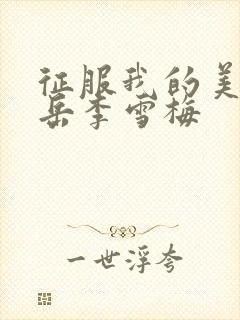 征服我的美
岳李雪梅
一世浮夸